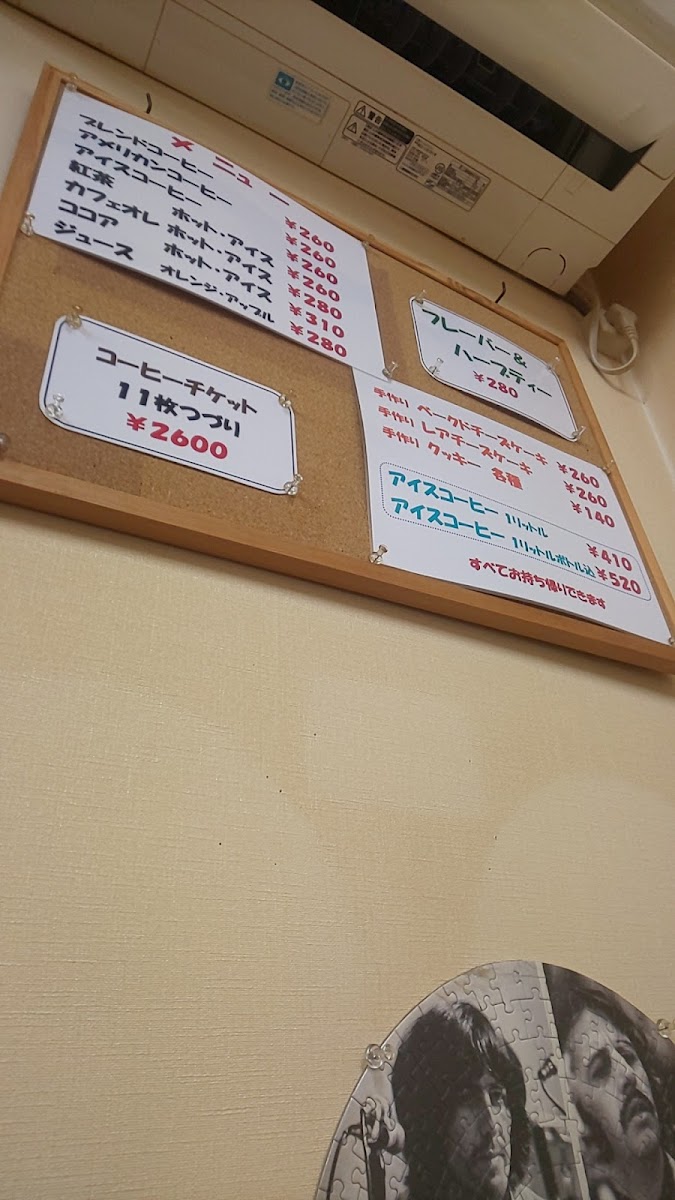 メニュー
ブレンドコーヒー ¥260
アメリカンコーヒー ¥260
アイスコーヒー ¥260
紅茶 ホット・アイス ¥260
カフェオレ ホット・アイス ¥280
ココア ホット・アイス ¥310
ジュース オレンジ・アップル ¥280
コーヒーチケット
11枚つづり
¥2600
フレーバー&
ハーブティー
¥280
手作り ベークドチーズケーキ ¥260
手作り レアチーズケーキ ¥260
手作り クッキー 各種 ¥140
アイスコーヒー 1リットル ¥410
アイスコーヒー 1リットルボトル込 ¥520
すべてお持ち帰りできます
警告